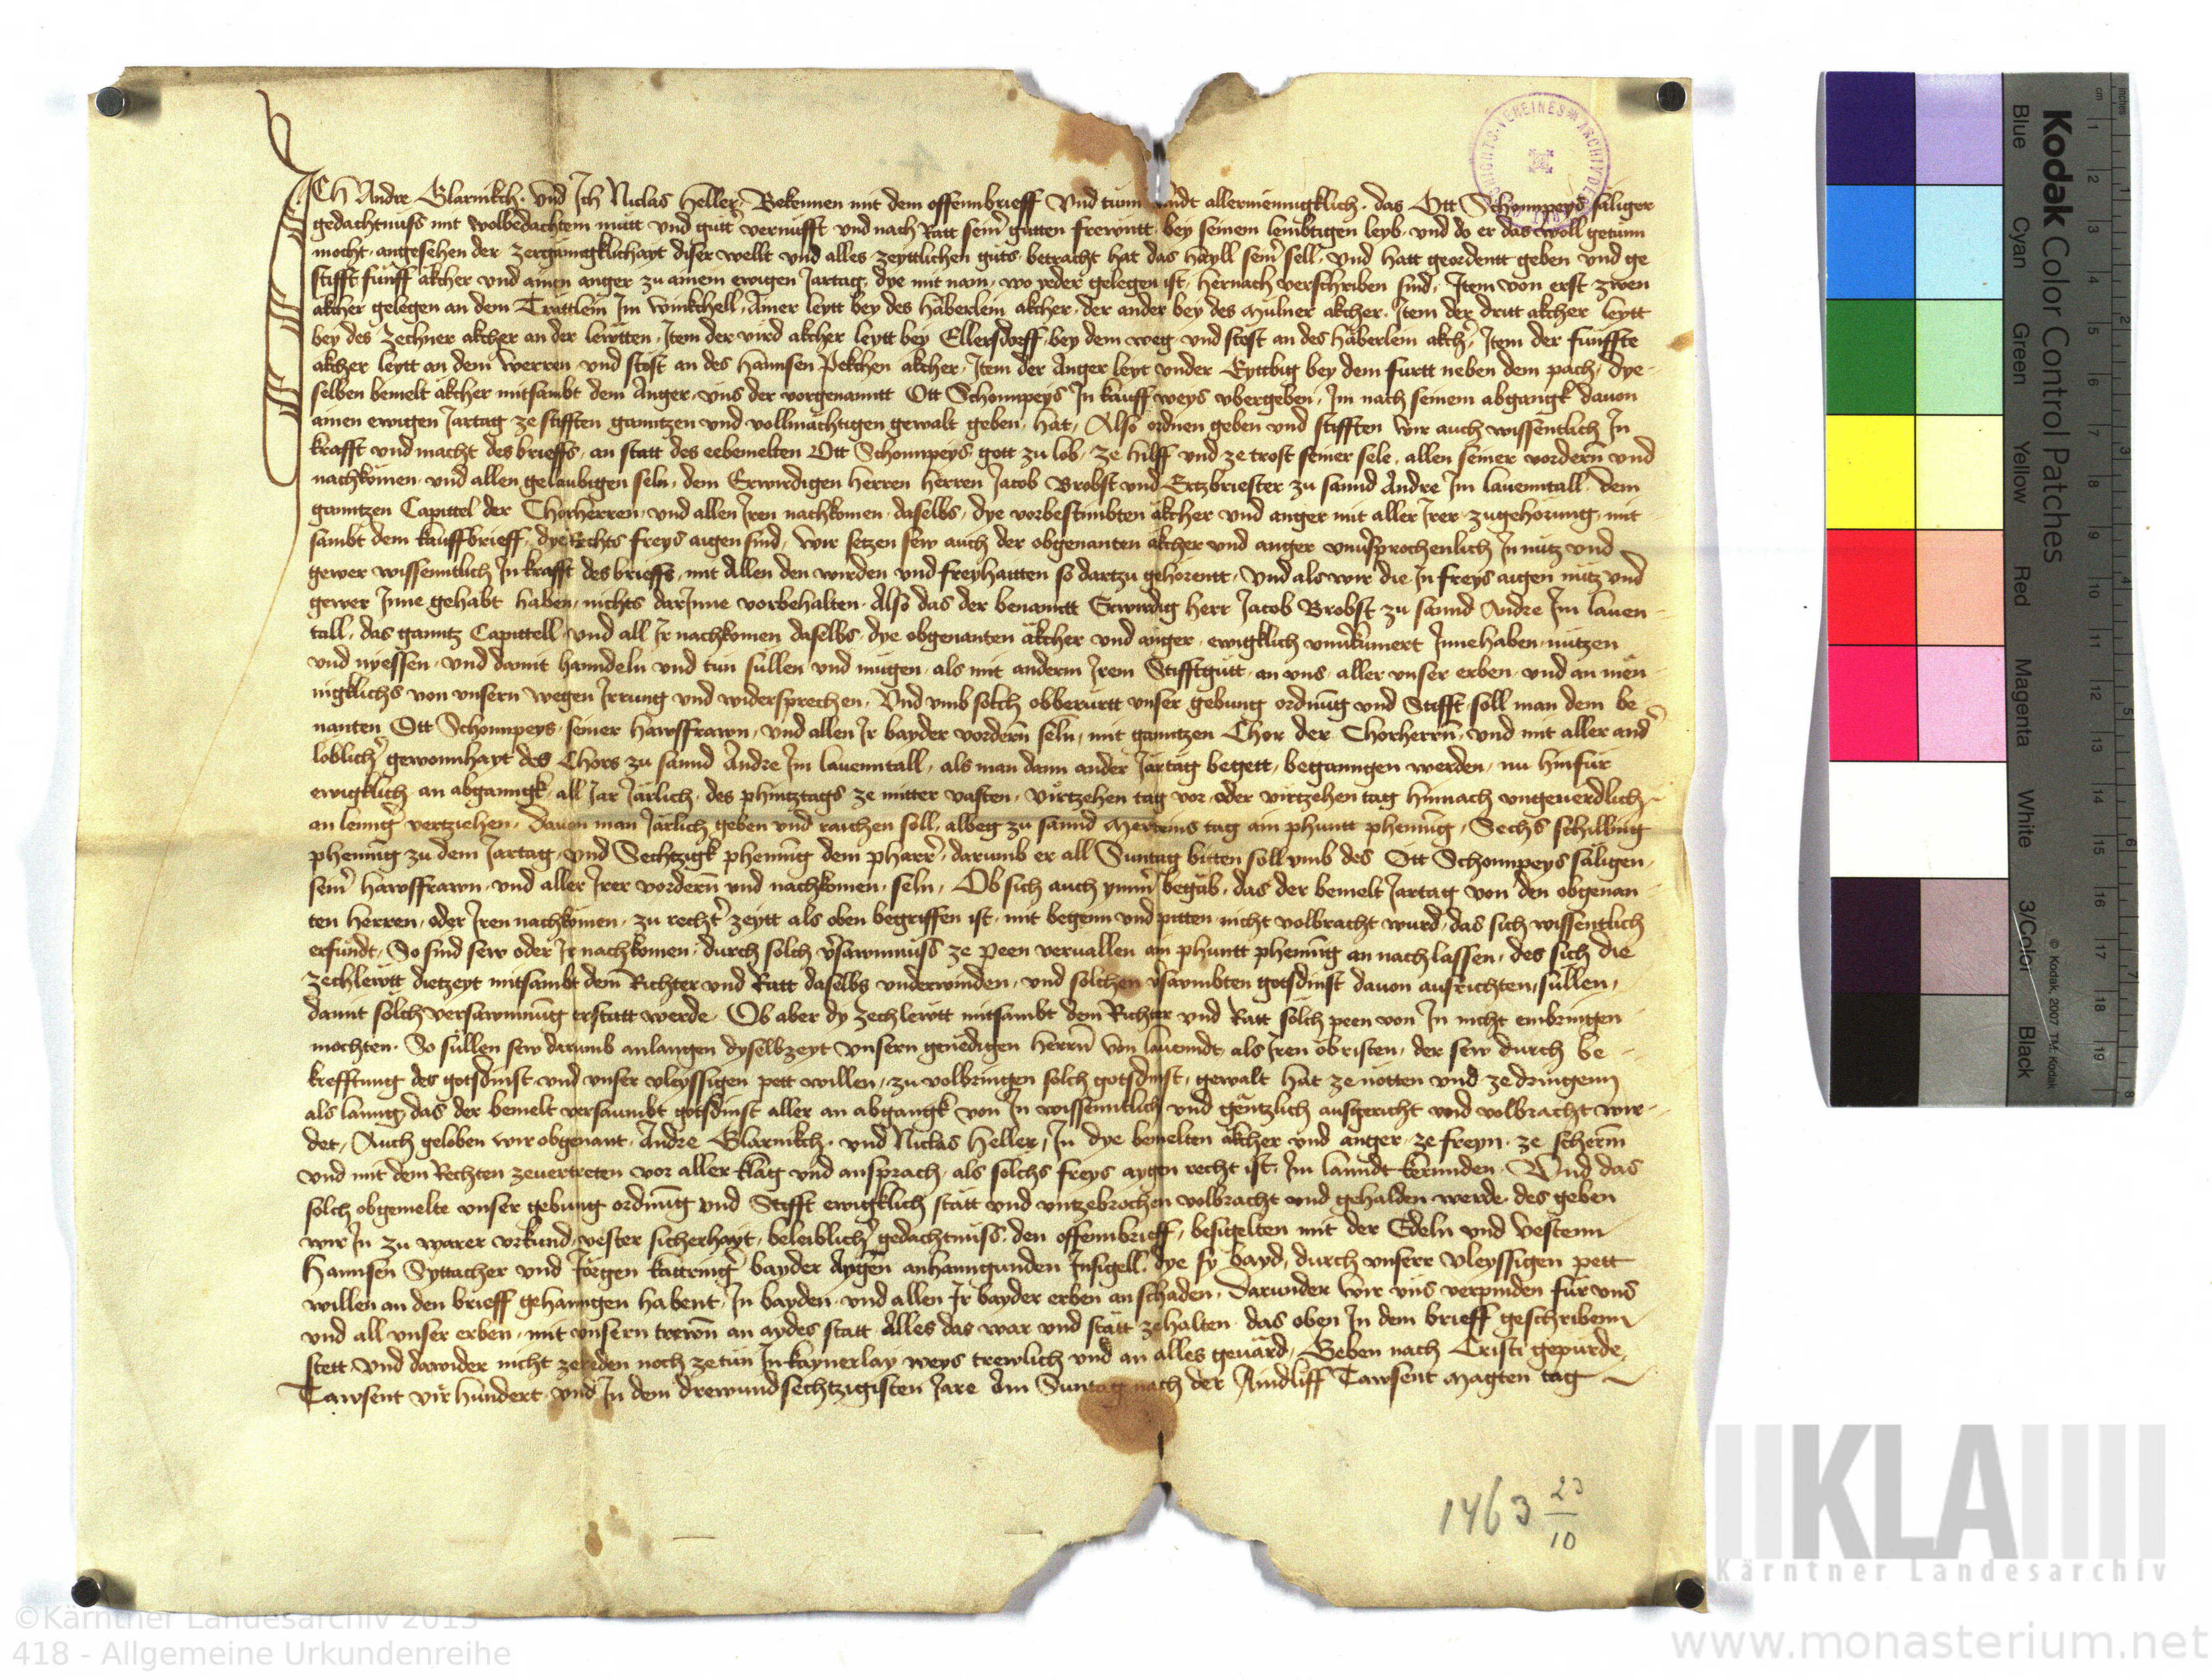 ICh Andre Glarnikch. vnd Ich Niclas Heller, Bekennen mit dem offennbrieff Vnd tunn kundt allermennigklich. das Ott Schompeys säliger
gedachtnuss mit wolbedachtem mutt vnd gutter vernufft vnd nach Ratt seiner gutten frewntt bey seinem lembtigen leyb. vnd do er das woll getunn
mocht. angesehen der zergänngklichayt diser wellt vnd alles zeyttlichen guts. betracht hat das Hayll seiner sell, vnd hatt geordentt geben vnd ge
stifft funff äkcher vnd ainen anger zu ainem ewigen Jartag, dye mit nam, wo yeder gelegen ist, hernach verschriben sind, Item von erst zwen
äkcher gelegen an dem Trattlein Im Winkchell, Ainer leytt bey des Häberlein akcher, der ander bey des Mulner akcher. Item der dritt akcher leytt
bey des Zechner akcher an der lewtten, Item der vird akcher leytt bey Ellersdorff, bey dem weg, vnd stost an des Häberlein akcher, Item der funffte
akcher leytt an dem Werren, vnd stost an des Hannsen Pekchen akcher, Item der Anger leyt vnder Eyttbig bey dem furtt neben dem pach, dye
selben bemelt äkcher mitsambt dem Anger, vns der vorgenanntt Ott Schompeys In kauff weys vbergeben, Im nach seinem abgangk dauon
ainen ewigen Jartag ze stifften ganntzen vnd vollmächtigen gewalt geben, hat, Also ordnen geben vnd stifften wir auch wissentlich In
krafft vnd macht des brieffs, an statt des eebemelten Ott Schompeys gott zu lob, ze hilff vnd ze trost seiner sele, allen seiner vordern vnd
nachkomen, vnd allen gelaubigen seln, dem Erwirdigen Herren Herren Jacob Brobst vnd Ertzbriester zu sannd Andre Im lauenntall, dem
ganntzen Capittel der Chorherren, vnd allen Iren nachkomen, daselbs, dye vorbestimbten äkcher vnd anger mit aller Irer zugehorung, mit
sambt dem kauffbrieff, dye Rechts freys aigen sind, Wir setzen sew auch der obgenanten äkcher vnd anger vnuersprochenlich In nutz vnd
gewer wissenntlich In krafft des brieffs, mit Allen den wirden vnd freyhaitten so dartzu gehorentt, Vnd als wir die In freys aigen nutz vnd
gewer Inne gehabt haben, nichts darInne vorbehalten. Also das der benanntt Erwirdig Herr Jacob Brobst zu sannd Andre Im lauen
tall, das ganntz Capittell, vnd all Ir nachkomen daselbs, dye obgenanten äkcher vnd anger, ewigklich vnuerkumert Innehaben, nutzen
vnd nyessen, vnd damit hanndeln vnd tun sullen vnd mugen, als mit anderm Irem Stifftgutt, an vns, aller vnser erben, vnd an men
nigklichs von vnsern wegen Irrung vnd widersprechen, Vnd vmb solch obberurtt vnser gebung ordnung vnd Stifft, soll man dem be
nanten Ott Schompeys, seiner Hawsfrawn, vnd allen Ir bayder vordern seln, mit ganntzen Chor der Chorherrn, vnd mit aller ander
loblicher gewonnhayt des Chors zu sannd Andre Im lauenntall, als man dann ander Järtäg begett, begangen werden, nu hinfur
ewigklich an abganngk, all Jar Järlich, des phintztags ze mitter vasten, virtzehen tag vor, oder virtzehen tag hinnach vngeuerdlich
an lenger vertziehen, Dauon man Järlich geben vnd raichen soll, albeg zu sannd Merteins tag ain phuntt phennig, Sechs schilling
phennig zu dem Jartag, vnd Sechtzigk phennig dem pharrer, darumb er all Suntag bitten soll vmb des Ott Schompeys säligen,
seiner Hawsfrawn, vnd aller Irer vordern vnd nachkomen, seln, Ob sich auch ymmer begäb, das der bemelt Jartag von den obgenan
ten Herren, oder Iren nachkomen, zu rechter zeytt als oben begriffen ist, mit begenn vnd pitten nicht volbracht wurd, das sich wissentlich
erfundt, So sind sew oder Ir nachkomen, durch solch versawmnuss ze peen veruallen ain phuntt phennig an nachlassen, des sich die
zechlewtt dietzeyt mitsambt dem Richter vnd Ratt daselbs vnderwinden, vnd solchen versaumbten gotsdinst dauon ausrichten sullen,
damit solch versawmnung erstatt werde. Ob aber dy zechlewtt mitsambt dem Richter vnd Ratt solch peen von In nicht einbringen
mochten. So sullen sew darumb anlangen dyselbzeyt vnsern genedigen Herrn von lauenndt, als Iren obristen, der sew durch be
krefftung des gotsdinst, vnd vnser vleyssigen pett willen, zu volbringen solch gotsdinst, gewalt hat ze notten vnd ze dringenn
als lanng, das der bemelt versaumbt gotsdinst aller an abgangk von In wissenntlich vnd gentzlich ausgericht vnd volbracht wir
det, Auch geloben wir obgenant Andre Glarnikch. vnd Niclas Heller, In dye bemelten äkcher vnd anger, ze freyn, ze scherm
vnd mit dem Rechten zeuertreten vor aller klag vnd ansprach, als solchs freys aygen recht ist, Im lanndt kernnden, Vnd das
solch obgemelte vnser gebung ordnung vnd Stifft ewigklich stätt vnd vntzebrochen volbracht vnd gehalden werde, des geben
wir In zu warer vrkund, vester sicherhayt, beleiblicher gedachtnuss, den offennbrieff, besigelten mit der Edeln vnd Vestenn
Hannsen Syttacher vnd Jörgen kattringer bayder Aygen anhanngunden Insigell, dye sy bayd, durch vnserr vleyssigen pett
willen an den brieff gehanngen habent, In bayden, vnd allen Ir bayder erben an schaden, Darunder wir vns verpinden fur vns
vnd all vnser erben, mit vnsern trewn an aydes statt Alles das war vnd stätt zehalten das oben In dem brieff geschribenn
stett vnd dawider nicht zereden noch zetun In kaynerlay weys trewlich vnd an alles geuärd, Geben nach Cristi gepurde
Tawsent vir hundert vnd In dem drewundsechtzigisten Jare Am Suntag nach der Aindliff Tawsent Magten tag
1463 23/10
GESCHICHTS-VEREINES ARCHIV DES
Kodak Color Control Patches
Blue Cyan Green Yellow Red Magenta White 3/Color Black
© Kodak, 2007 TM: Kodak
inches 1 2 3 4 5 6 7 8
cm 1 2 3 4 5 6 7 8 9 10 11 12 13 14 15 16 17 18 19
KLA
Kärntner Landesarchiv
©Kärntner Landesarchiv 2013
418 - Allgemeine Urkundenreihe
www.monasterium.net